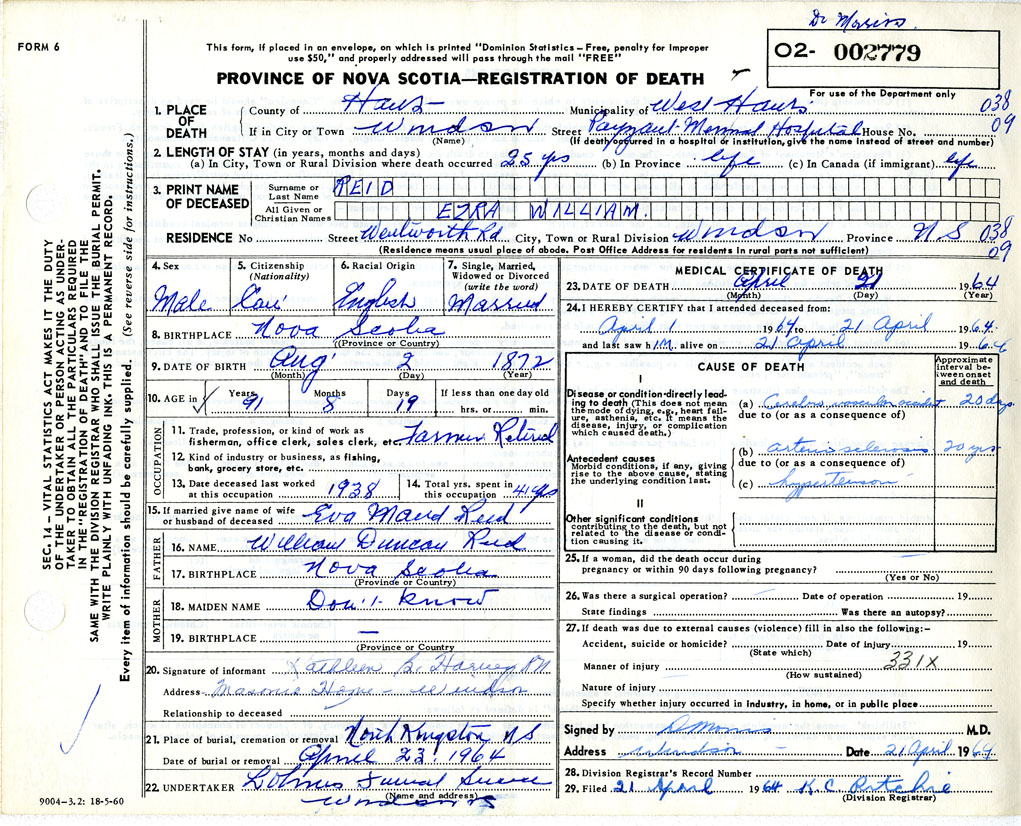 Dr Morris
FORM 6
This form, if placed in an envelope, on which is printed "Dominion Statistics—Free, penalty for improper
use $50," and properly addressed will pass through the mail "FREE"
02- 002779
PROVINCE OF NOVA SCOTIA—REGISTRATION OF DEATH
For use of the Department only
1. PLACE OF DEATH
County of Hants Municipality of West Hants 038
If in City or Town Windsor Street Payzant Memorial Hospital House No. 09
(Name) (If death occurred in a hospital or institution, give the name instead of street and number)
2. LENGTH OF STAY (in years, months and days)
(a) In City, Town or Rural Division where death occurred 25 yrs (b) In Province life (c) In Canada (if immigrant) life
3. PRINT NAME OF DECEASED
Surname or Last Name REID
All Given or Christian Names EZRA WILLIAM.
RESIDENCE No Street Wentworth Rd City, Town or Rural Division Windsor Province N S 038
(Residence means usual place of abode. Post Office Address for residents in rural parts not sufficient) 09
4. Sex Male
5. Citizenship (Nationality) Can
6. Racial Origin English
7. Single, Married, Widowed or Divorced (write the word) Married
8. BIRTHPLACE Nova Scotia
(Province or Country)
9. DATE OF BIRTH Aug 2 1872
(Month) (Day) (Year)
10. AGE in Years 91 Months 8 Days 19 If less than one day old
hrs. or min.
OCCUPATION
11. Trade, profession, or kind of work as
fisherman, office clerk, sales clerk, etc. Farmer Retired
12. Kind of industry or business, as fishing,
bank, grocery store, etc.
13. Date deceased last worked at this occupation 1938
14. Total yrs. spent in this occupation 41 yrs
15. If married give name of wife
or husband of deceased Eva Maud Reid
FATHER
16. NAME William Duncan Reid
17. BIRTHPLACE Nova Scotia
(Province or Country)
MOTHER
18. MAIDEN NAME Don't know
19. BIRTHPLACE —
(Province or Country)
20. Signature of informant Kathleen B. Harvey RN
Address Masonic Home - Windsor
Relationship to deceased
21. Place of burial, cremation or removal North Kingston NS
Date of burial or removal April 23, 1964
22. UNDERTAKER Funeral Service
(Name and address)
Windsor NS
9004-3.2: 18-5-60
MEDICAL CERTIFICATE OF DEATH
23. DATE OF DEATH April 21 1964
(Month) (Day) (Year)
24. I HEREBY CERTIFY that I attended deceased from:
April 1 1964 to 21 April 1964
and last saw him alive on 21 April 1964
CAUSE OF DEATH
Approximate interval between onset and death
I
Disease or condition directly leading to death (This does not mean the mode of dying, e.g., heart failure, asthenia, etc. It means the disease, injury, or complication which caused death.)
(a) Cerebro vascular accident 20 days
due to (or as a consequence of)
Antecedent causes
Morbid conditions, if any, giving rise to the above cause, stating the underlying condition last.
(b) arterio sclerosis 20 yrs
due to (or as a consequence of)
(c) hypertension
II
Other significant conditions
contributing to the death, but not related to the disease or condition causing it.
25. If a woman, did the death occur during
pregnancy or within 90 days following pregnancy?
(Yes or No)
26. Was there a surgical operation? Date of operation 19
State findings Was there an autopsy?
27. If death was due to external causes (violence) fill in also the following:–
Accident, suicide or homicide? Date of injury 19
(State which)
Manner of injury 331X
(How sustained)
Nature of injury
Specify whether injury occurred in Industry, in home, or in public place
Signed by D Morris M.D.
Address Windsor Date 21 April 1964
28. Division Registrar's Record Number
29. Filed 21 April 1964 K. C. Ritchie
(Division Registrar)
SEC. 14 – VITAL STATISTICS ACT MAKES IT THE DUTY
OF THE UNDERTAKER OR PERSON ACTING AS UNDERTAKER
TO OBTAIN ALL THE PARTICULARS REQUIRED
IN THE "REGISTRATION OF DEATH" AND TO FILE THE
SAME WITH THE DIVISION REGISTRAR WHO SHALL ISSUE THE BURIAL PERMIT.
WRITE PLAINLY WITH UNFADING INK. THIS IS A PERMANENT RECORD.
Every item of information should be carefully supplied. (See reverse side for instructions.)